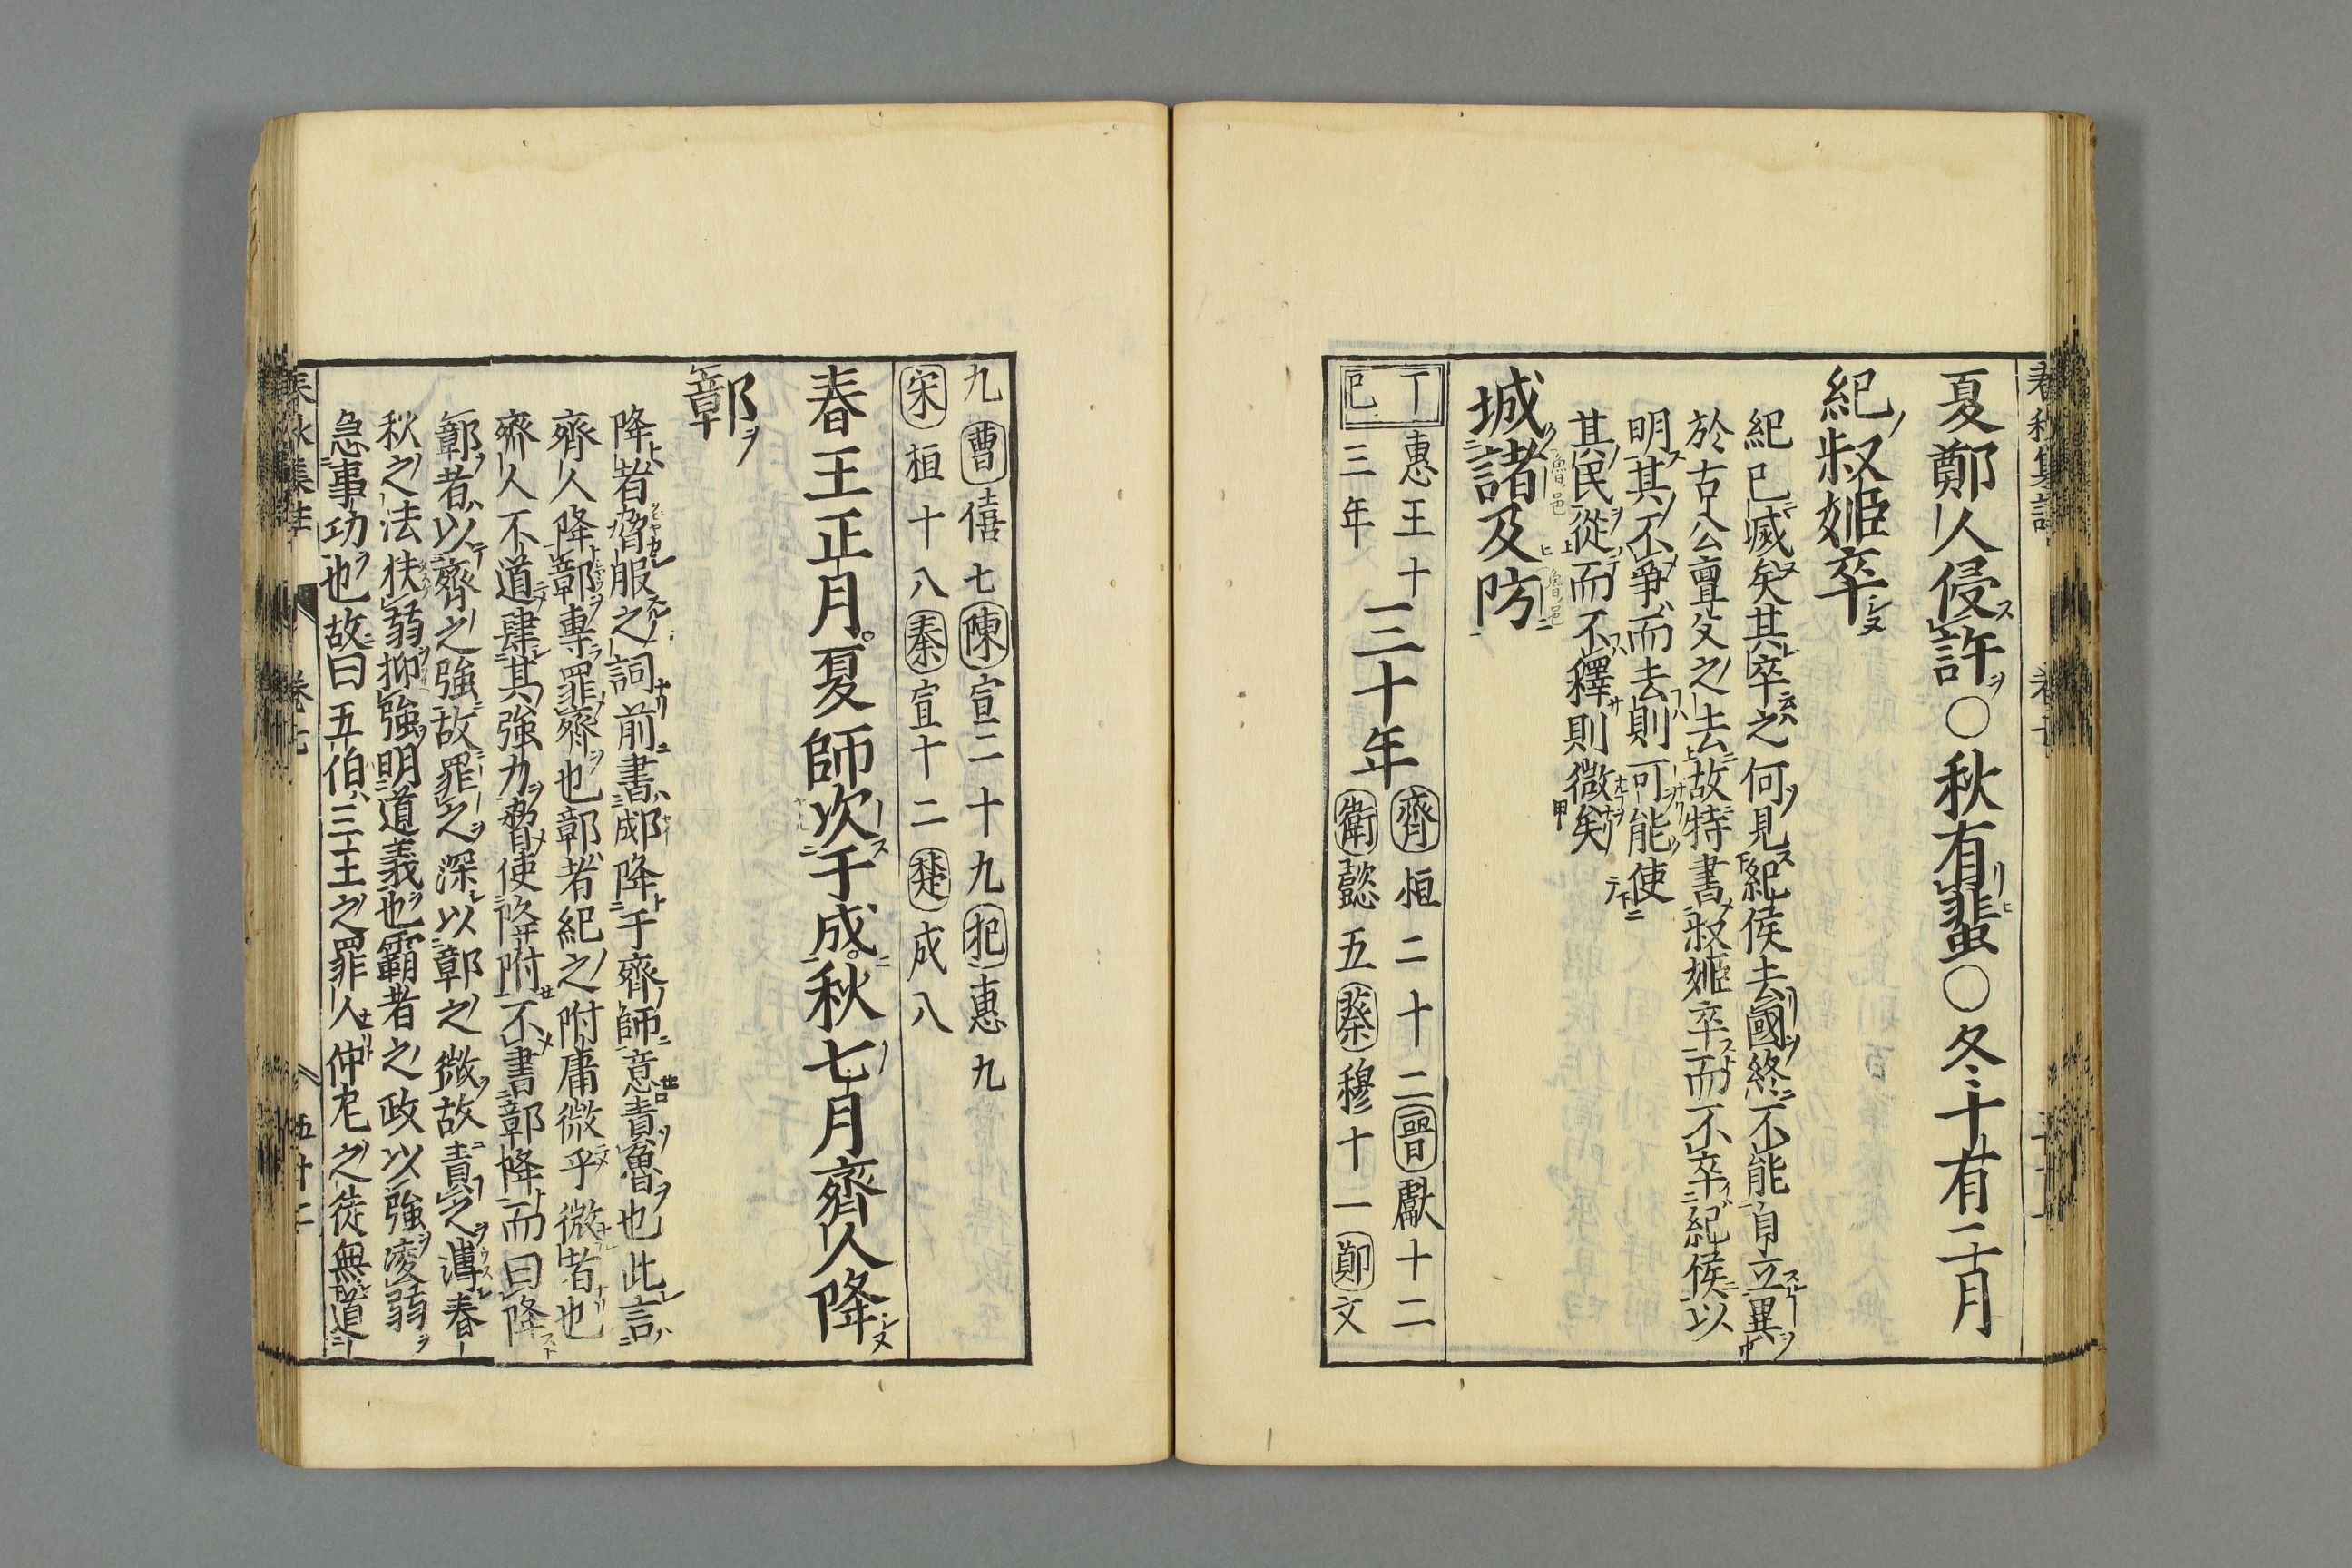 夏鄭人侵許○秋有蜚○冬十有二月
紀叔姬卒
紀已滅矣其卒之何見紀侯去國終不能自立異
於古公亶父之去故特書叔姬卒而不卒紀侯以
明其不爭而去則可能使
其民從而不釋則微矣
城諸及防
魯邑
魯邑
丁巳
惠王十
三年
三十年
齊桓二十二晉獻十二
衛懿五蔡穆十一鄭文
九曹僖七陳宣二十九杞惠九
宋桓十八秦宣十二楚成八
春王正月。夏師次于成。秋七月齊人降
鄣
降者脅服之詞前書郕降于齊師意責魯也此言
齊人降鄣專罪齊也鄣者紀之附庸微乎微者也
齊人不道肆其強力脅使降附不書鄣降而曰降
鄣者以齊之強故罪之深以鄣之微故責之薄春
秋之法扶弱抑強明道義也霸者之政以強凌弱
急事功也故曰五伯三王之罪人仲尼之徒無道
春秋集註 卷七 五十二